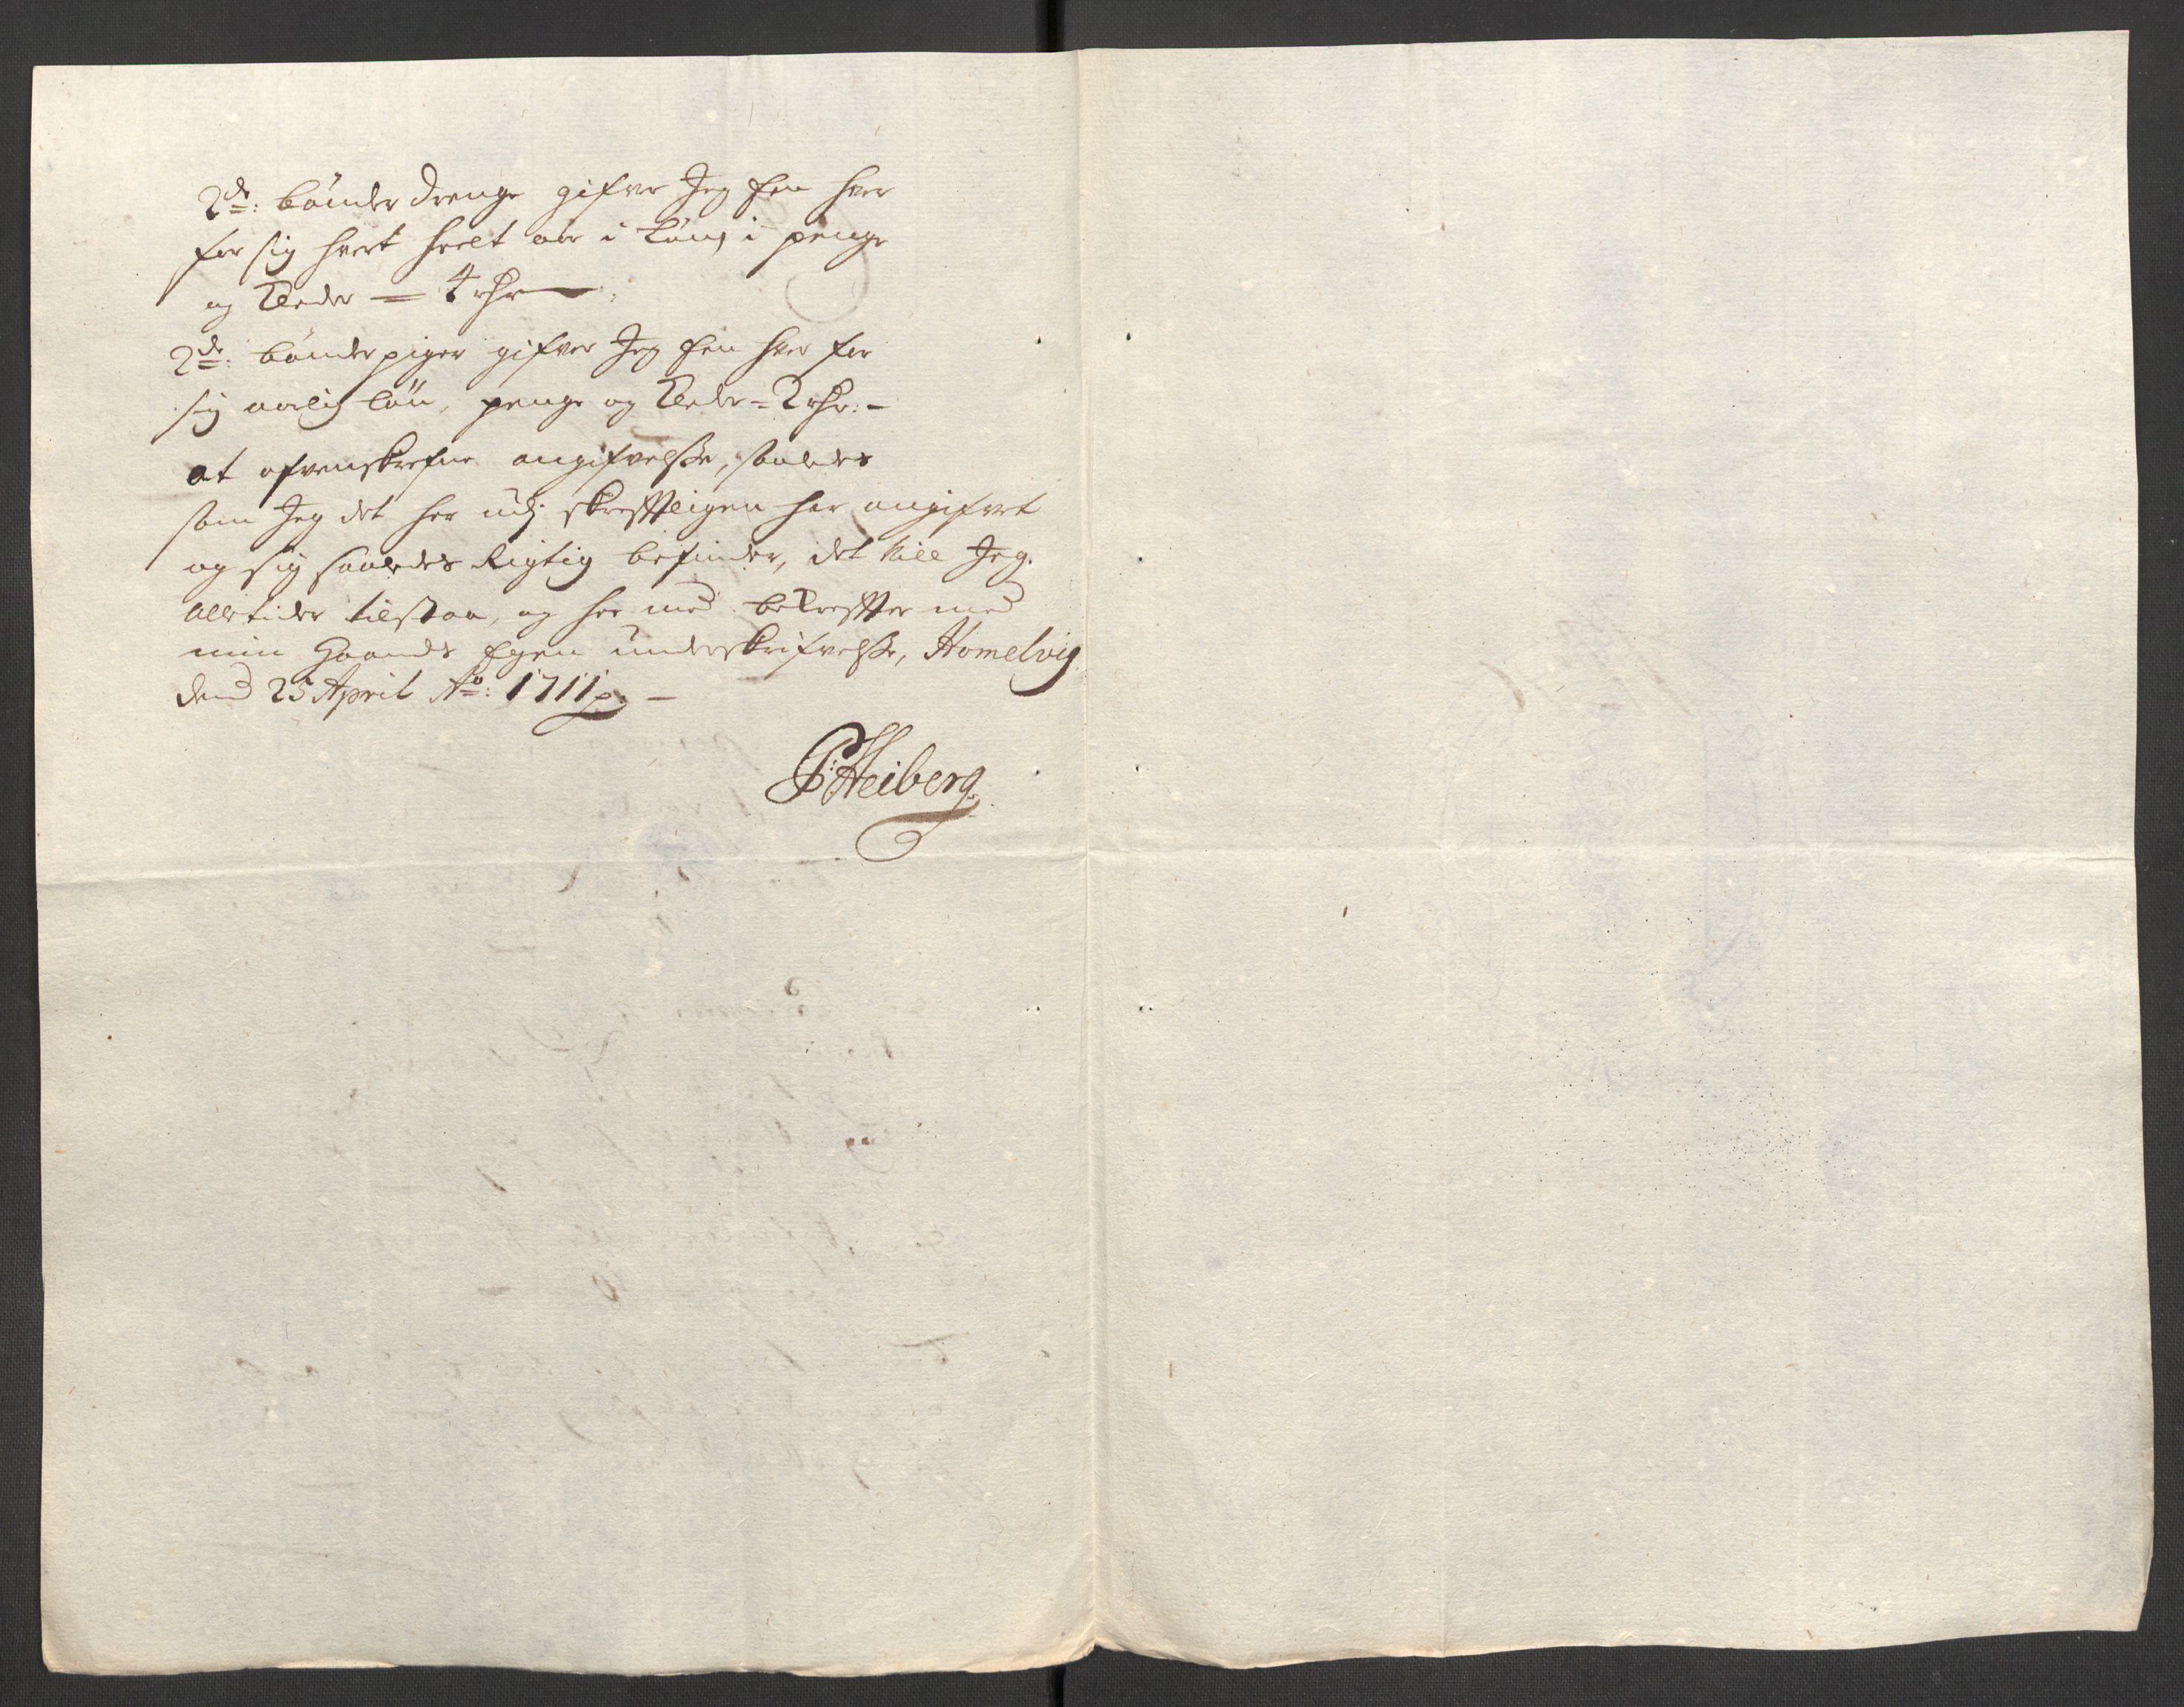 2de: bönder drenge gifver Jeg En hver
for sig hvert heelt aar i Löng i penge
og Kleder = 4 rdr
2de: bönder piger gifver Jeg En hver for
sig aarlig lön, penge og Kleder = 2 rdr: -
at ofvenskrefne angifvelsse, saaledes
som Jeg det her udj skrefftligen har angifvet
og sig saaledes Rigtig befinder, det vill Jeg
alle tider tilstaa, og her med bekreffter med
min Haands Egen underskrifvelsse, Homelvig
dend 25 April Ao: 1711 -
P: Heiberg